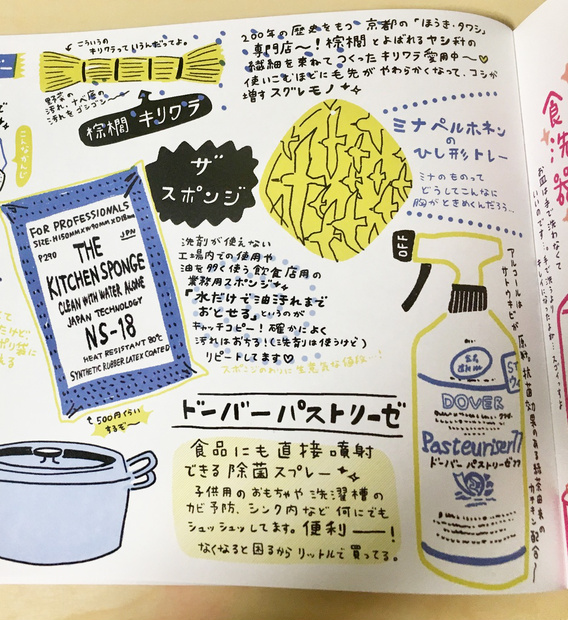 こういうの
キリワラっていうんだってよ。
野菜の
汚れ、ナベ底の
汚れをゴシゴシ〜
棕櫚 キリワラ
200年の歴史をもつ 京都の「ほうき・タワシ」
専門店〜!棕櫚とよばれるヤシ科の
繊維を束ねてつくったキリワラ愛用中〜♡
使いこむほどに毛先がやわらかくなって、コシが
増すスグレモノ
ミナペルホネン
の
ひし形トレー
ミナのものって
どうしてこんなに
胸がときめくんだろう…
ザ
スポンジ
FOR PROFESSIONALS
SIZE:H150MM×W90MM×D18MM
P290
JPN
THE
KITCHEN SPONGE
CLEAN WITH WATER ALONE
JAPAN TECHNOLOGY
NS-18
HEAT RESISTANT 80℃
SYNTHETIC RUBBER LATEX COATED
500円ぐらい
するぞ〜
洗剤が使えない
工場内での使用や
油を多く使う飲食店用の
業務用スポンジ
「水だけで油汚れまで
おとせる」というのが
キャッチコピー!確かによく
汚れはおちる!(洗剤は使うけど)
リピートしてます♡
スポンジのわりに生意気な値段…!
ドーバーパストリーゼ
食品にも直接噴射
できる除菌スプレー
子供用のおもちゃや洗濯槽の
カビ予防、シンク内など何にでも
シュッシュッしてます。便利ー!
なくなると困るからリットルで買ってる。
OFF
DOVER
Pasteuriser77
ドーバー パストリーゼ77
アルコールは
サトウキビが
原料。抗菌効果のある緑茶由来の
カテキン配合〜
食洗器